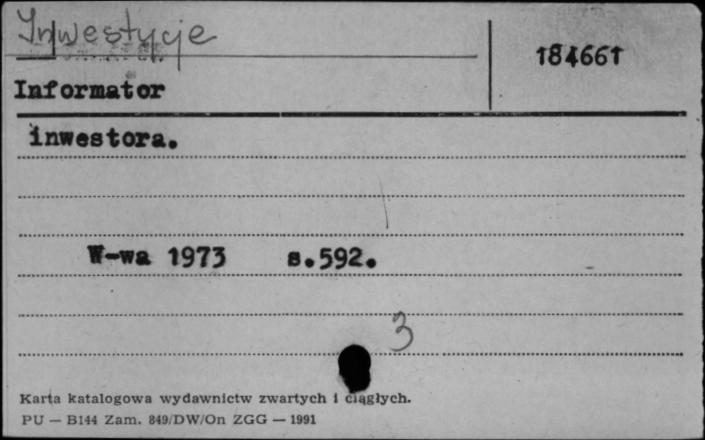 Inwestycje
184661
Informator
inwestora.
W-wa 1973 s.592.
3
Karta katalogowa wydawnictw zwartych i ciągłych.
PU — B144 Zam. 849/DW/On ZGG — 1991